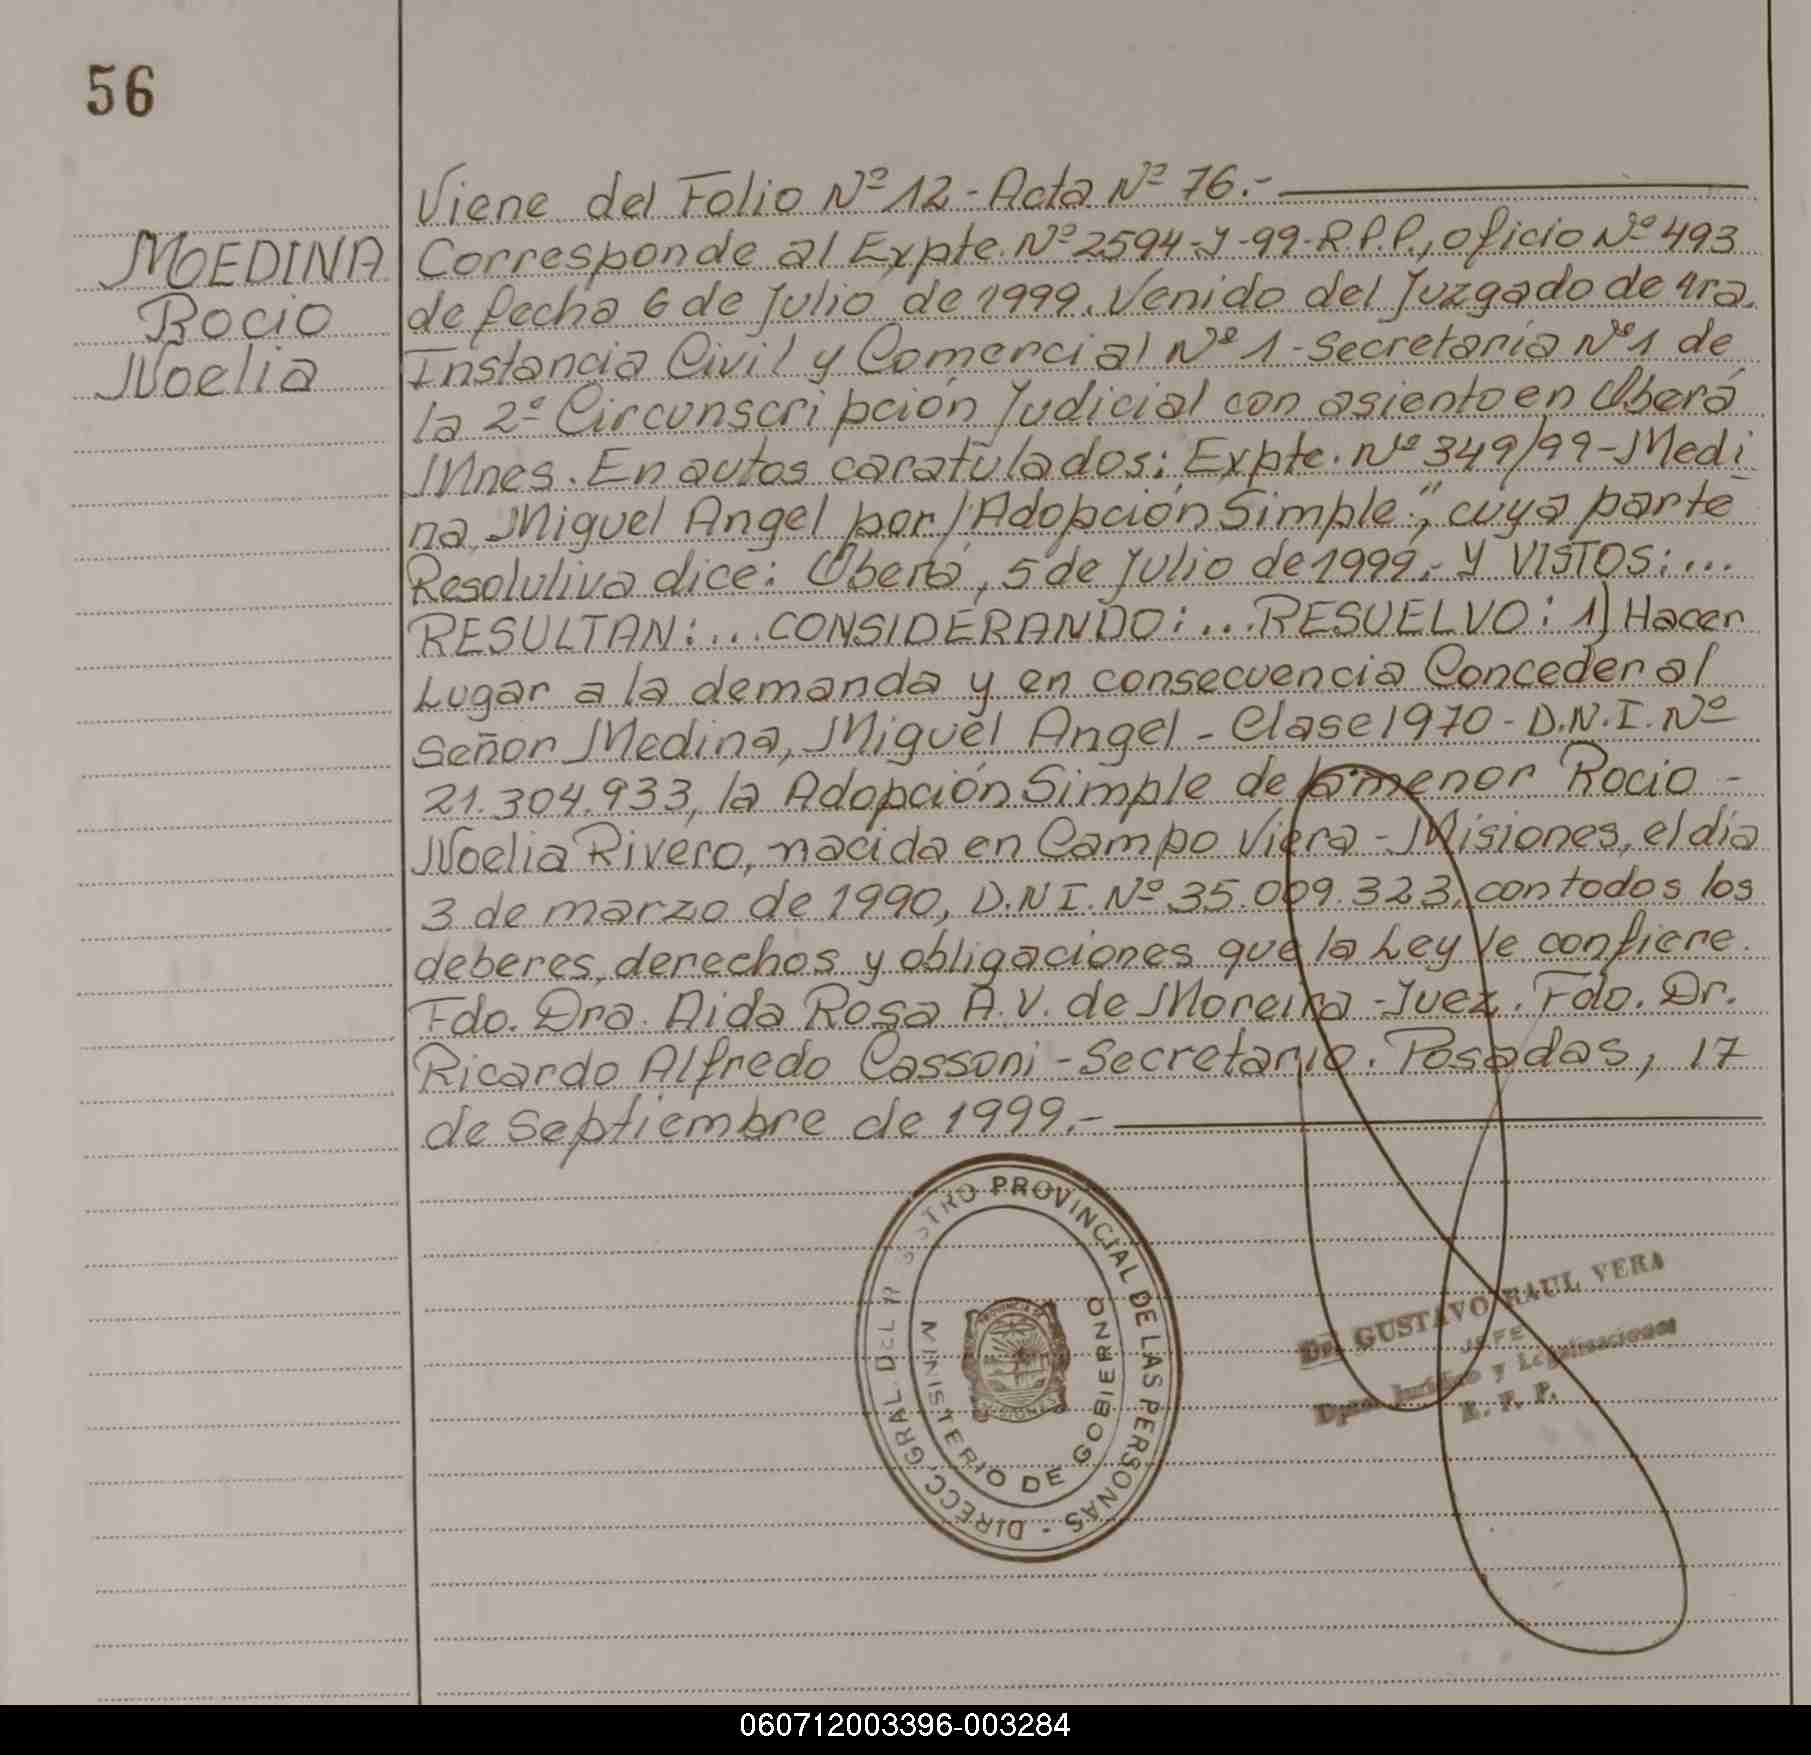 56
MOEDINA
Rocio
Noelia
Viene del Folio Nº 12 - Acta Nº 76.-
Corresponde al Expte. Nº 2594-J-99-R.P.P., oficio Nº 493
de fecha 6 de Julio de 1999. Venido del Juzgado de 1ra.
Instancia Civil y Comercial Nº 1 - Secretaría Nº 1 de
la 2º Circunscripción Judicial con asiento en Oberá
Mnes. En autos caratulados: Expte. Nº 349/99 - Medi
na, Miguel Angel por/Adopción Simple", cuya parte
Resolutiva dice: Oberá, 5 de Julio de 1999.- Y VISTOS: ...
RESULTAN: ... CONSIDERANDO: ... RESUELVO: 1) Hacer
Lugar a la demanda y en consecuencia Conceder al
Señor Medina, Miguel Angel - Clase 1970 - D.N.I. Nº
21.304.933, la Adopción Simple de la menor Rocio -
Noelia Rivero, nacida en Campo Viera - Misiones, el día
3 de marzo de 1990, D.N.I. Nº 35.009.323, con todos los
deberes, derechos y obligaciones que la Ley le confiere.
Fdo. Dra. Aida Rosa A.V. de Moreira - Juez. Fdo. Dr.
Ricardo Alfredo Cassoni - Secretario. Posadas, 17
de Septiembre de 1999.-
DIRECC. GRAL. DEL R STRO PROVINCIAL DE LAS PERSONAS -
MINISTERIO DE GOBIERNO
PROVINCIA DE
MISIONES
Dr. GUSTAVO RAUL VERA
JEFE
Dpto. Jurídico y Legalizaciones
R. P. P.
060712003396-003284